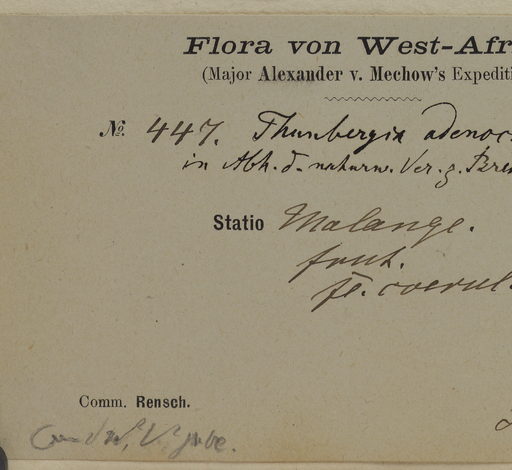 Flora von West-Afri
(Major Alexander v. Mechow's Expediti
№. 447. Thunbergia adenoc
in Abh. d. naturw. Ver. z. Brem
Statio Malange.
frut.
fl. coerul.
Comm. Rensch.